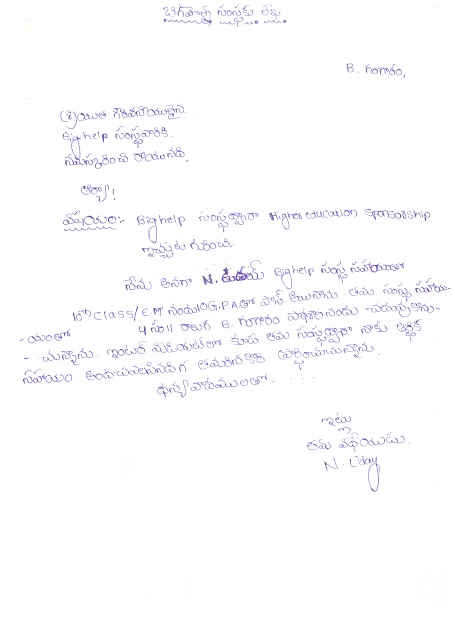 బిగ్‌హెల్ప్ సంస్థకు లేఖ
B. గంగారం,
శ్రీయుత గౌరవనీయులైన
Big help సంస్థవారికి
నమస్కరించి రాయునది.
ఆర్యా!
విషయం:- Big help సంస్థద్వారా Higher education Sponsorship
ఇచ్చుట గురించి
నేను అనగా N. ఉదయ్ Big help సంస్థ సహాయంతో
10th Class/E.M నందు 10 G.P.A తో పాస్ అయినాను తమ సంస్థ సహాయ-
-యంతో 4 సం|| రాలుగ B. గంగారం పాఠశాల నందు చదువుకొను-
-చున్నాను. ఇంటర్ మీడియట్‌లో కూడ తమ సంస్థద్వారా నాకు ఆర్థిక
సహాయం అందించవలసినదిగ తమరిని కోరి ప్రార్థించుచున్నాను.
ధన్యవాదములతో. . . . .
ఇట్లు
తమ విధేయుడు.
N. Uday